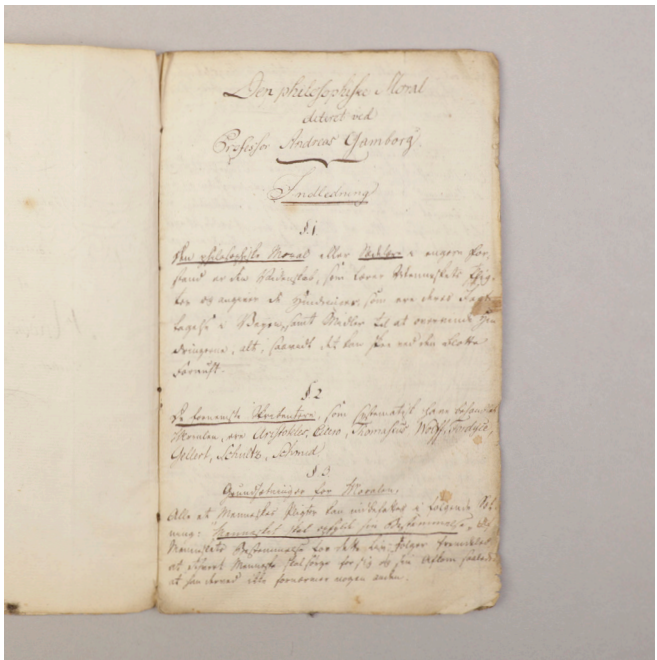 Den philosophiske Moral
dicteret ved
Professor Andreas Gamborg.
Indledning
§ 1.
Den philosophiske Moral eller i engere For-
stand er den Videnskab, som lærer Menneskets Plig-
ter og angiver de Hindringer, som ere deres Iagt-
tagelse i Vejen, samt Midler til at overvinde Hin-
dringerne, alt, saavidt det kan skee ved den blotte
Fornuft.
§ 2
De fornemste Skribentere, som systematisk have
Moralen, ere Aristoteles, Cicero, Thomasius, Wolff,
Gellert, Schultz, Schmid
§ 3.
Grundsætninger for Moralen.
Alle et Menneskes Pligter kan indbefattes i følgende Sæt-
ning: Mennesket skal opfylde sin Bestemmelse. Af
Menneskets Bestemmelse for dette Liv følger
at ethvert Menneske skal sørge for sig og sin saaledes
at han derved ikke fornærmer nogen anden.